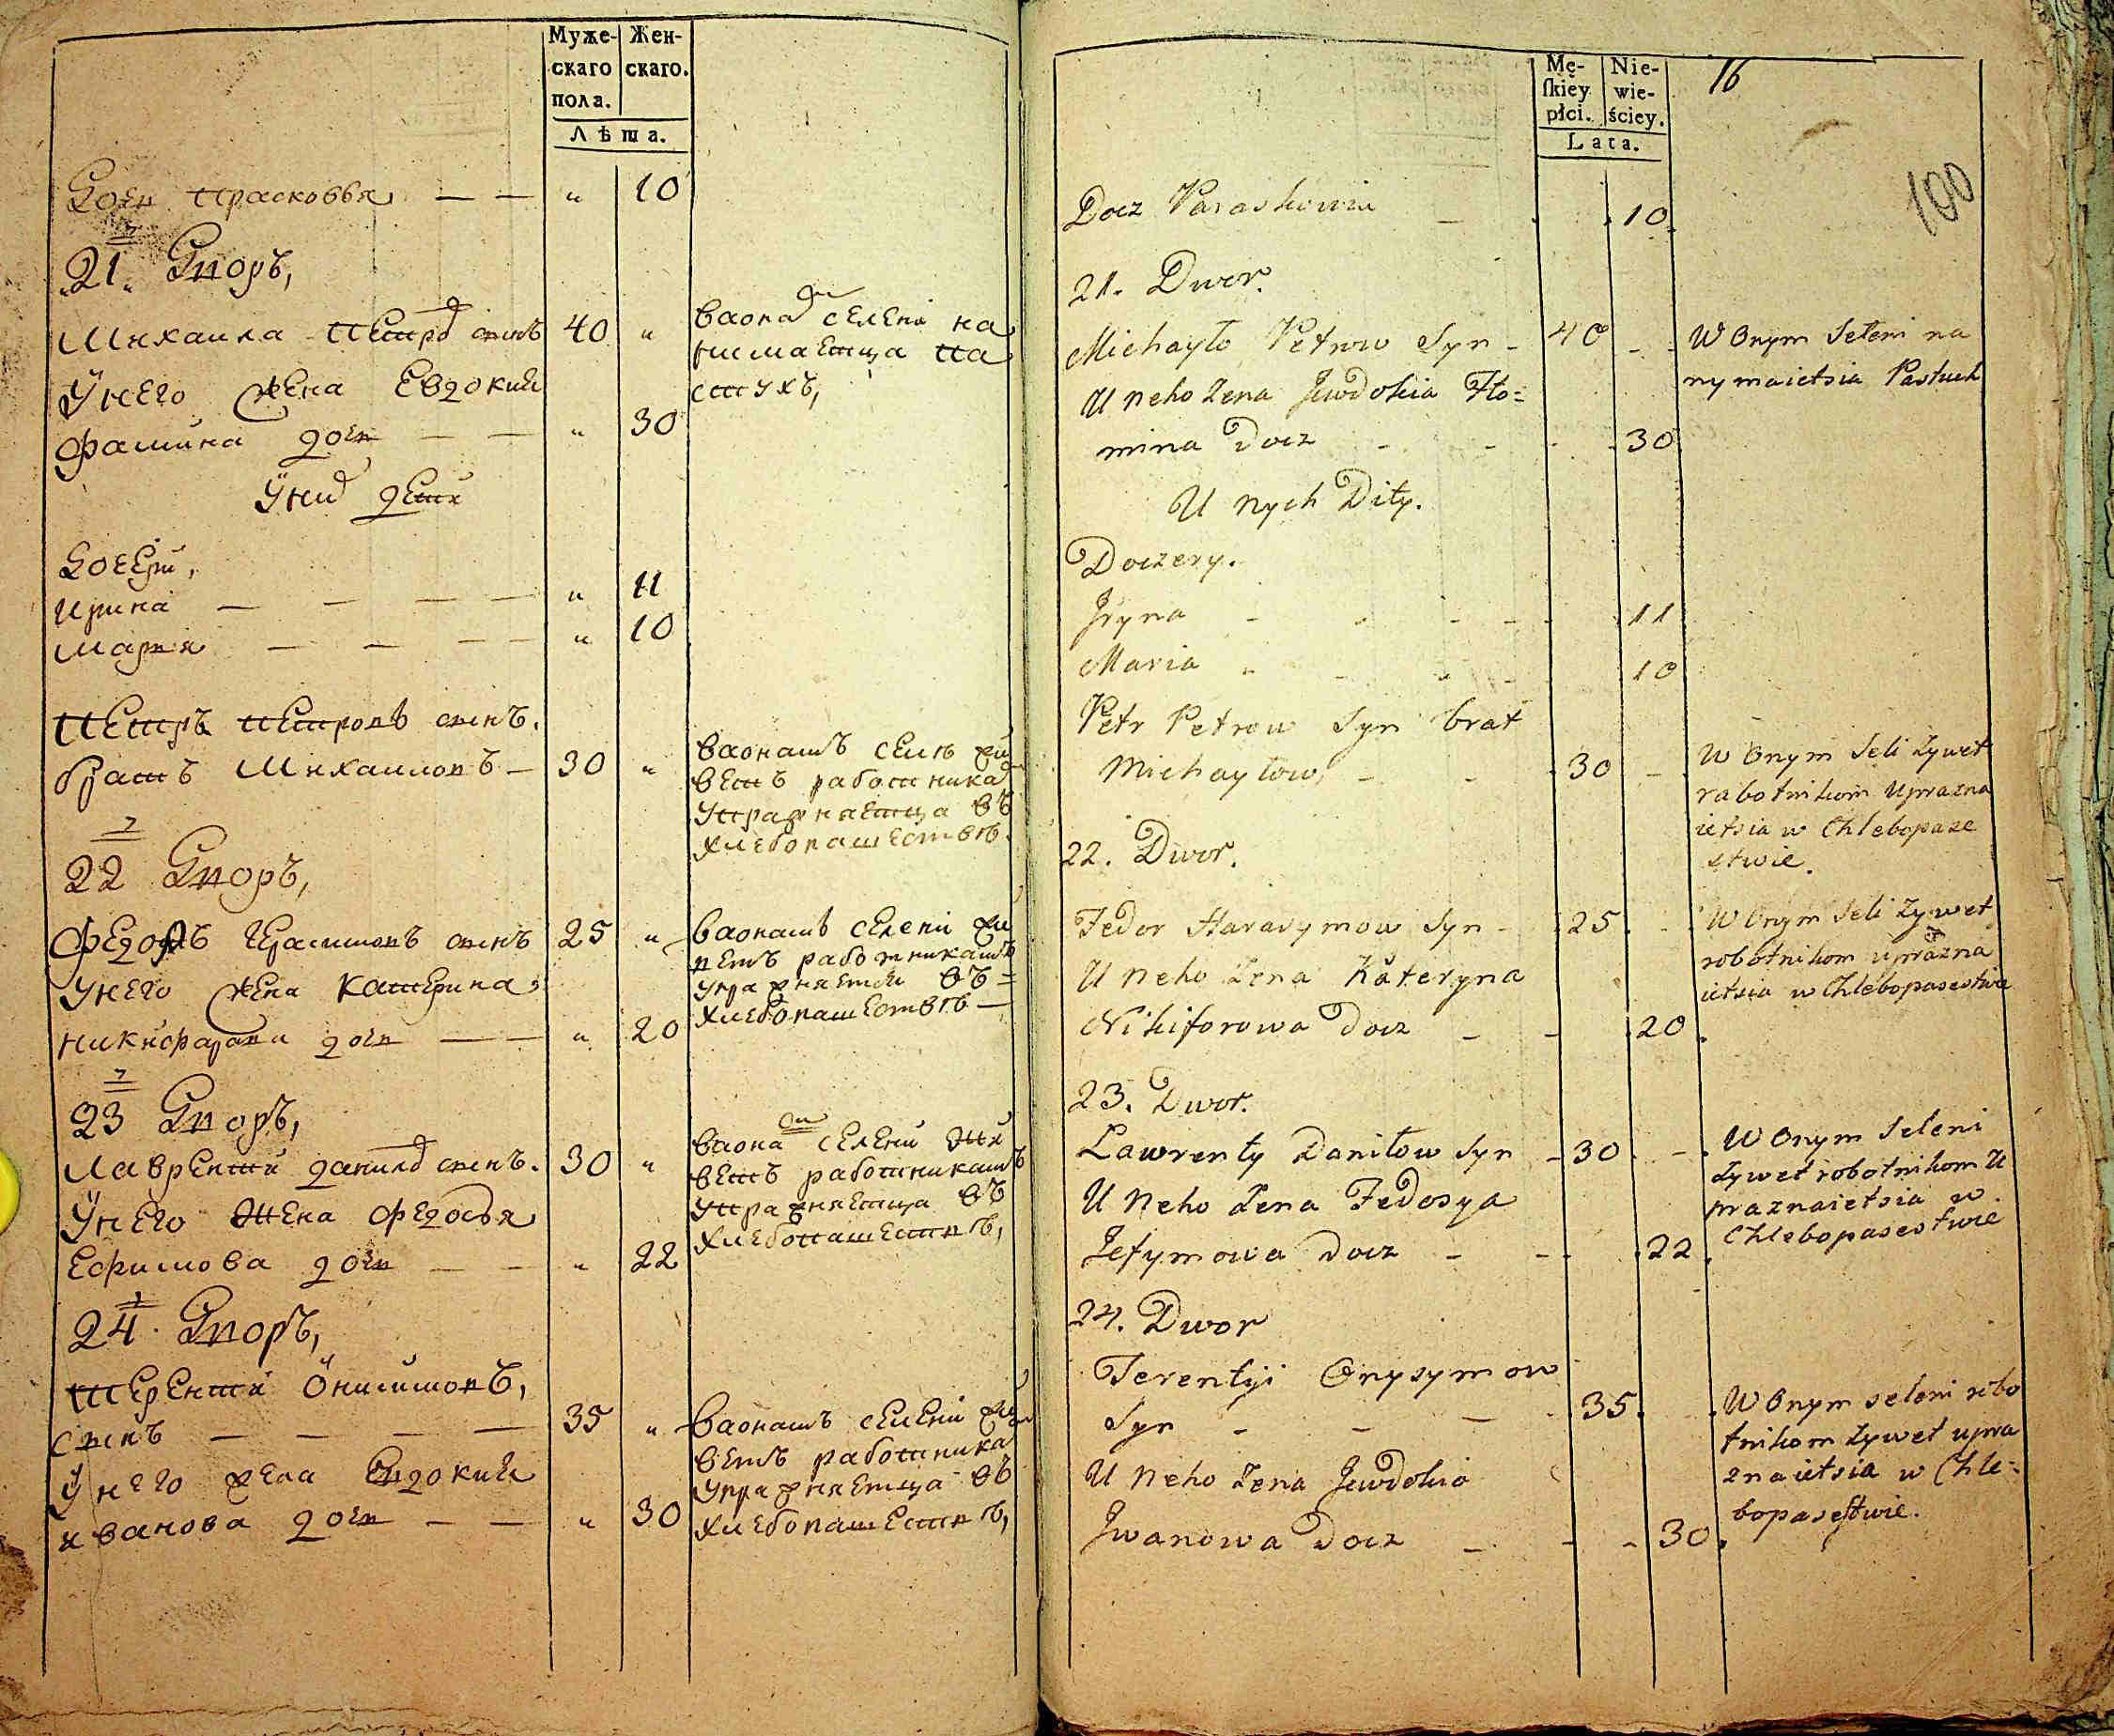 Муже- Жен-
скаго скаго.
пола.
Лѣта.
Дочь прасковья — — „ 10
21. Дворъ,
Михаила петро сынъ 40 „ Ваона селени на
нимаетца па
стухъ,
Унего жена Евдокия
Фамина дочь — — „ 30
Уних дети
Дочери,
Ирина — — — — „ 11
Мария — — — — „ 10
Петръ петровъ сынъ.
братъ Михаиловъ — 30 „ Ваономъ селѣ жи
ветъ работника
Упражняетца въ
хлебопашествѣ.
22 Дворъ,
Федоръ Герасимовъ сынъ 25 „ Ваономъ селени жи
ветъ работникомъ
упражняетси въ =
хлебопашествѣ —
Унего жена Катерина
никифарава дочь — — „ 20
23 Дворъ,
Лаврентий данило сынъ. 30 „ Ваона селени жи
ветъ работникомъ
Упражняетца въ
хлебопашествѣ,
Унего жена Федосья
Ефимова дочь — — „ 22
24. Дворъ,
Терентий Онисимовъ,
сынъ — — — — 35 „ Ваономъ селени жи
ветъ работника
Упражняетца въ
хлебопашествѣ,
Унего жена Евдокия
иванова дочь — — „ 30
Mę- Nie-
ſkiey wie-
płci. ściey.
Lata.
16
100
Docz Paraskowia — 10
21. Dwor.
Michayło Petrow Syn - 40 - - W Onym Seleni na
nymaietsia Pastuch
U neho Zena Jewdokia Fto=
mina Docz - - - 30
U nych Dity.
Doczery.
Jryna - - - - 11
Maria - - - - 10
Petr Petrow Syn brat
Michayłow, - - 30 - W Onym Seli Zywet
rabotnikom Uprazna
ietsia w Chlebopasze
stwie.
22. Dwor.
Fedor Harasymow Syn - 25 - W Onym Seli Zywet
robotnikom uprazna
ietsia w Chlebopasestwie
U neho Zena Kateryna
Nikiforowa Docz - - 20.
23. Dwor.
Lawrenty Daniłow Syn - 30 - W Onym Seleni
Zywet robotnikom U
praznaietsia w
Chlebopasestwie
U Neho Zena Fedosya
Jefymowa Docz - - 22.
24. Dwor
Terentyi Onysymow
Syn - - — 35. W Onym seleni robo
tnikom Zywet upra
znaietsia w Chle=
bopasestwie.
U Neho Zena Jewdokia
Jwanowa Docz - - - 30.